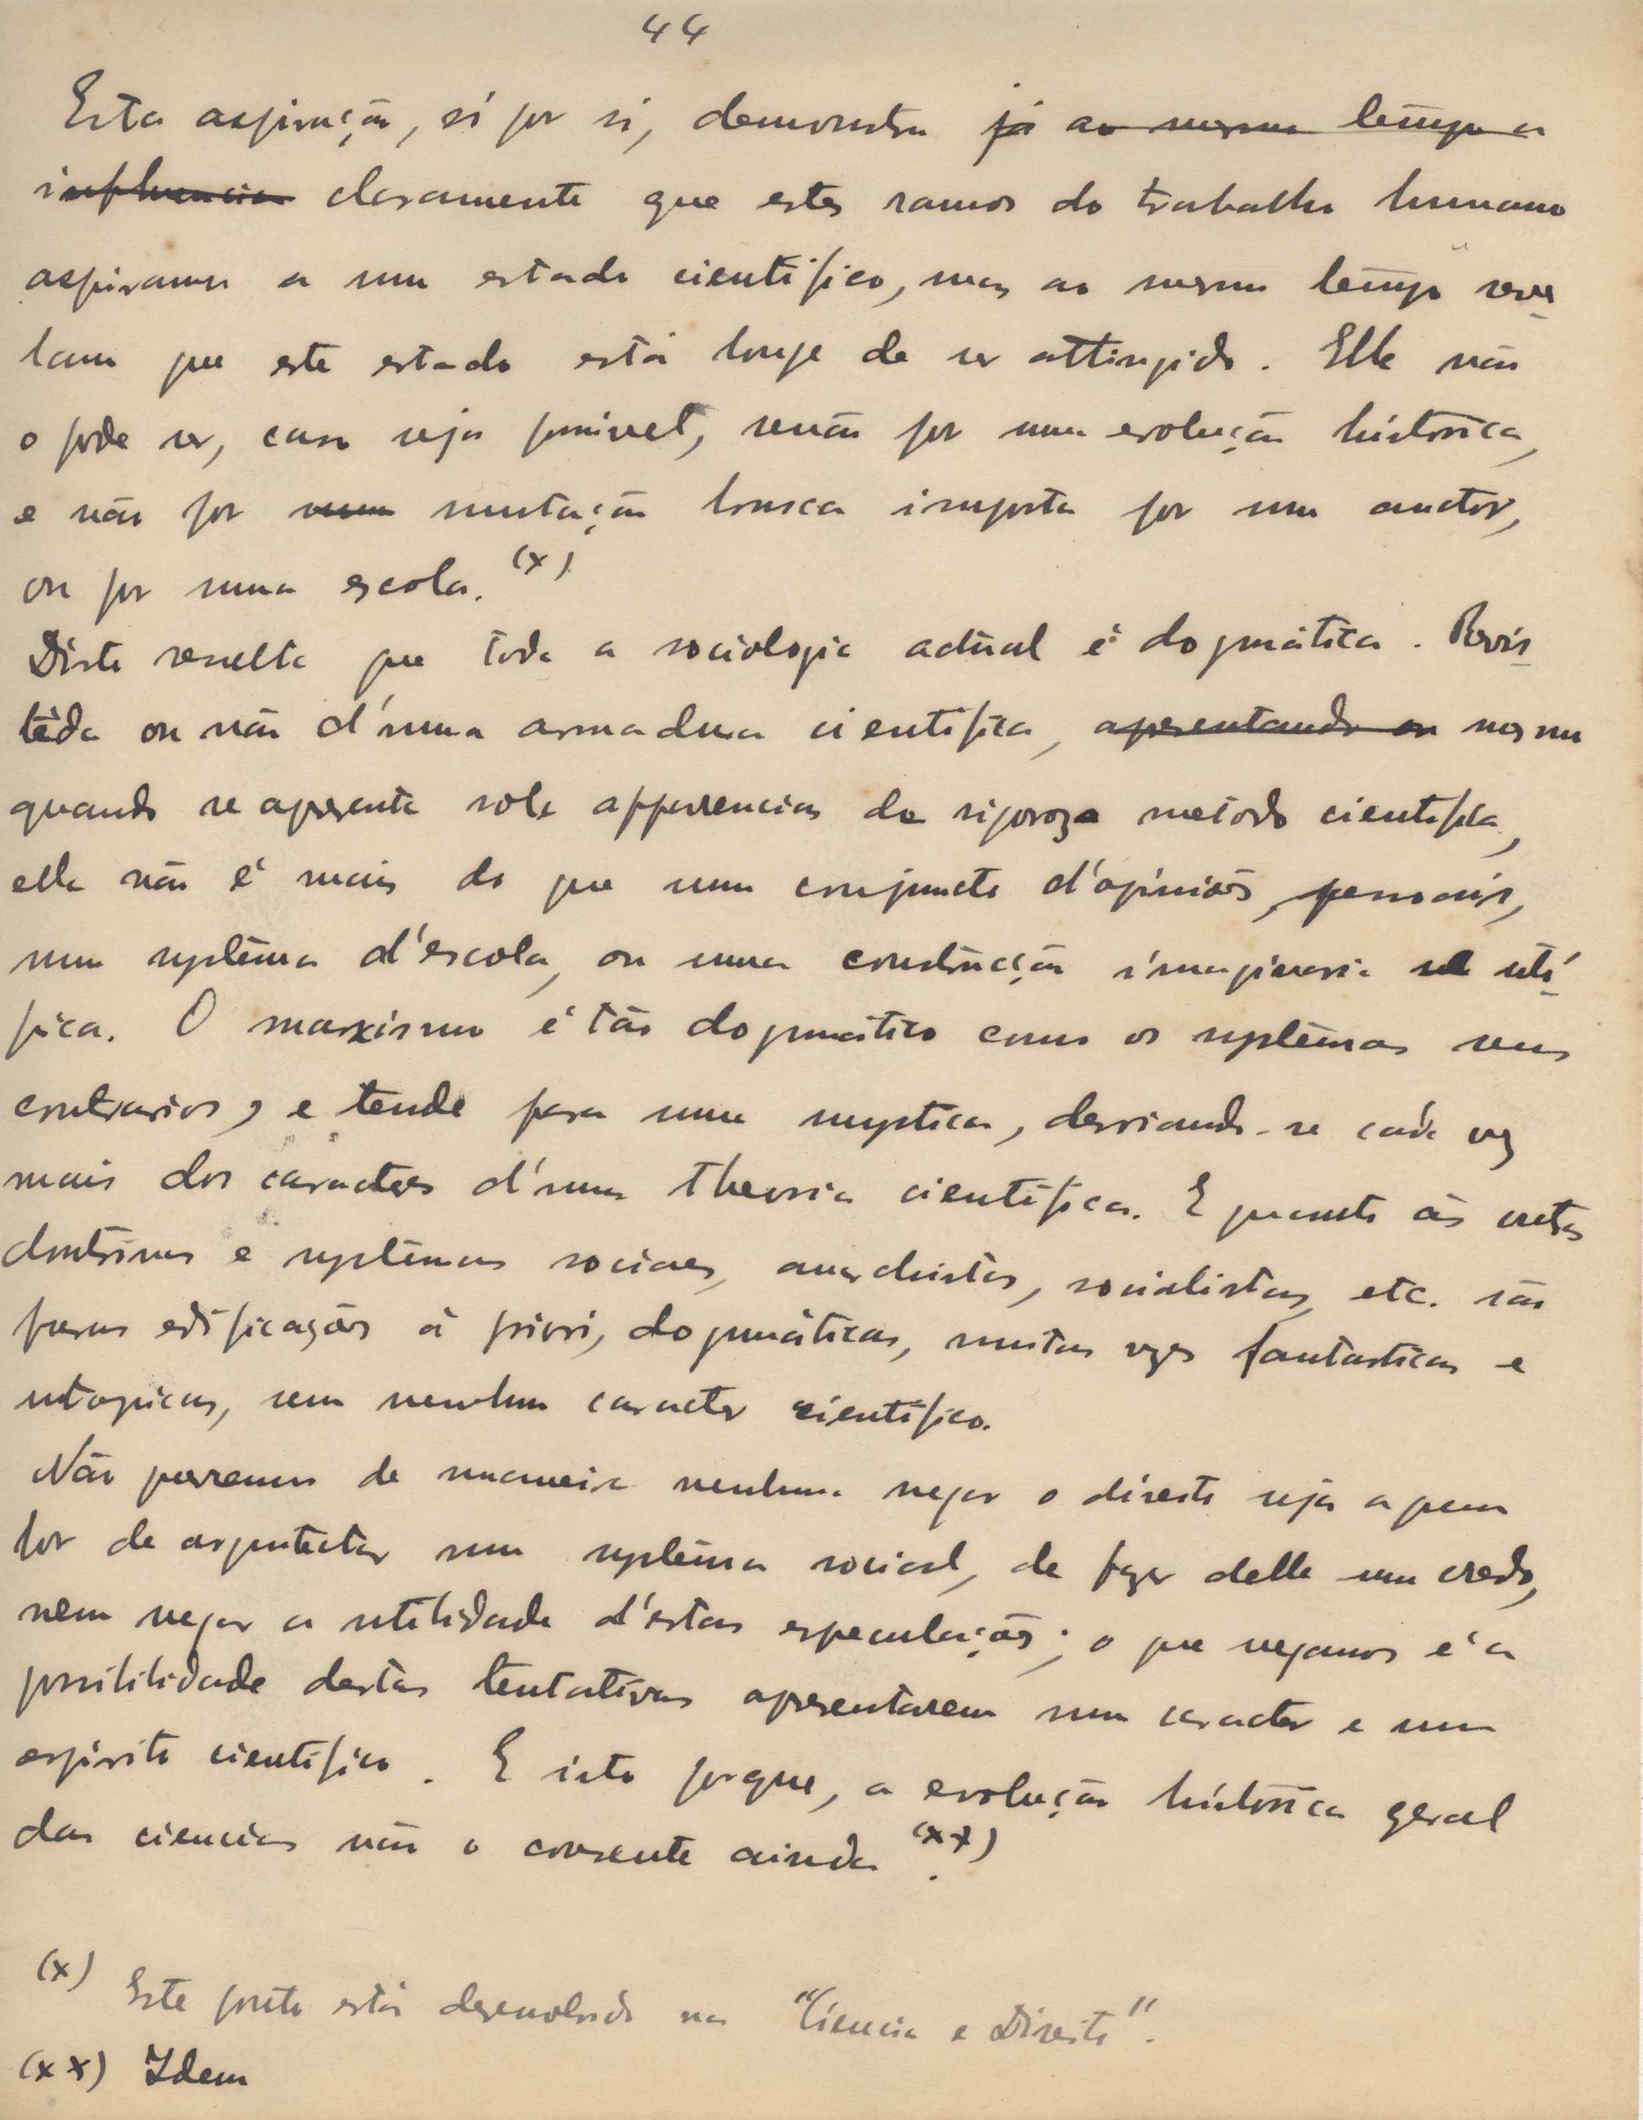 44
Esta aspiração, só por si, demonstra já ao mesmo tempo a
influencia claramente que estes ramos do trabalho humano
aspiramm a um estado cientifico, mas ao mesmo tempo reve
lam que este estado está longe de ser attingido. Elle não
o pode ser, caso seja possivel, senão por uma evolução histórica,
e não por uma mutação brusca imposta por um auctor,
ou por uma escola. (x)
Disto resulta que toda a sociologia actual é dogmática. Revis
tida ou não d'uma armadura cientifica, apresentando ou mesmo
quando se apresenta sob apparencias de rigoroso metodo cientifico,
ella não é mais do que um conjuncto d'opiniões pessoais,
um systema d'escola, ou uma construcção imaginaria
fica. O marxismo é tão dogmático como os systemas seus
contrarios, e tende para uma mystica, desviando-se cada vez
mais dos caracteres d'uma theoria cientifica. E quanto ás outras
doutrinas e systemas sociaes, anarchistas, socialistas, etc. são
puras edificações á priori, dogmáticas, muitas vezes fantasticas e
utopicas, sem nenhum caracter cientifico.
Não queremos de maneira nenhuma negar o direito seja a quem
for de arquitectar um systema social, de fazer delle um credo,
nem negar a utilidade d'estas especulações; o que negamos é a
possibilidade destas tentativas apresentarem um caracter e um
espirito cientifico. E isto porque, a evolução histórica geral
das ciencias não o consente ainda (xx).
(x) Este ponto está desenvolvido na "Ciencia e Direito".
(xx) Idem